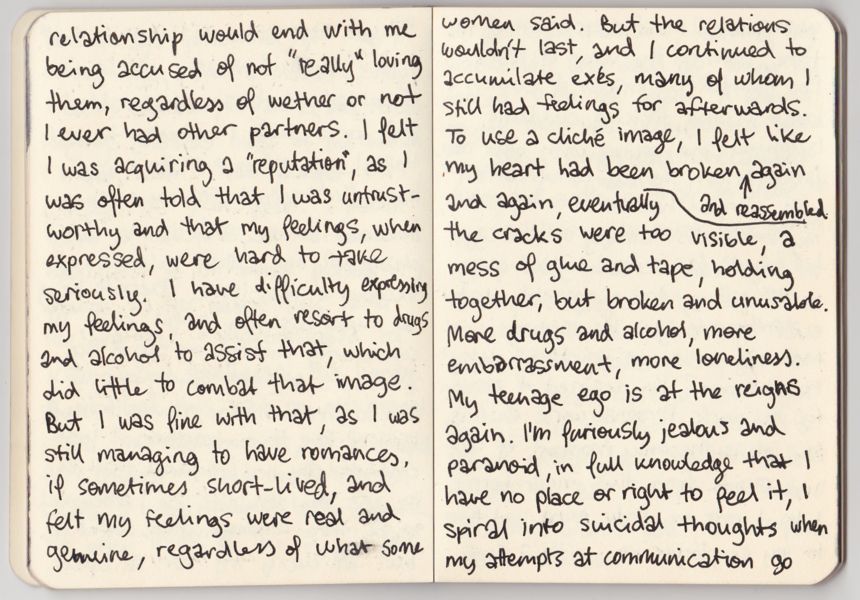 relationship would end with me
being accused of not "really" loving
them, regardless of wether or not
I ever had other partners. I felt
I was acquiring a "reputation", as I
was often told that I was untrust-
worthy and that my feelings, when
expressed, were hard to take
seriously. I have difficulty expressing
my feelings, and often resort to drugs
and alcohol to assist that, which
did little to combat that image.
But I was fine with that, as I was
still managing to have romances,
if sometimes short-lived, and
felt my feelings were real and
genuine, regardless of what some
women said. But the relations
wouldn't last, and I continued to
accumilate exes, many of whom I
still had feelings for afterwards.
To use a cliché image, I felt like
my heart had been broken, again
and again, eventually and reassembled
the cracks were too visible, a
mess of glue and tape, holding
together, but broken and unusable.
More drugs and alcohol, more
embarrassment, more loneliness.
My teenage ego is at the reigns
again. I'm furiously jealous and
paranoid, in full knowledge that I
have no place or right to feel it, I
spiral into suicidal thoughts when
my attempts at communication go